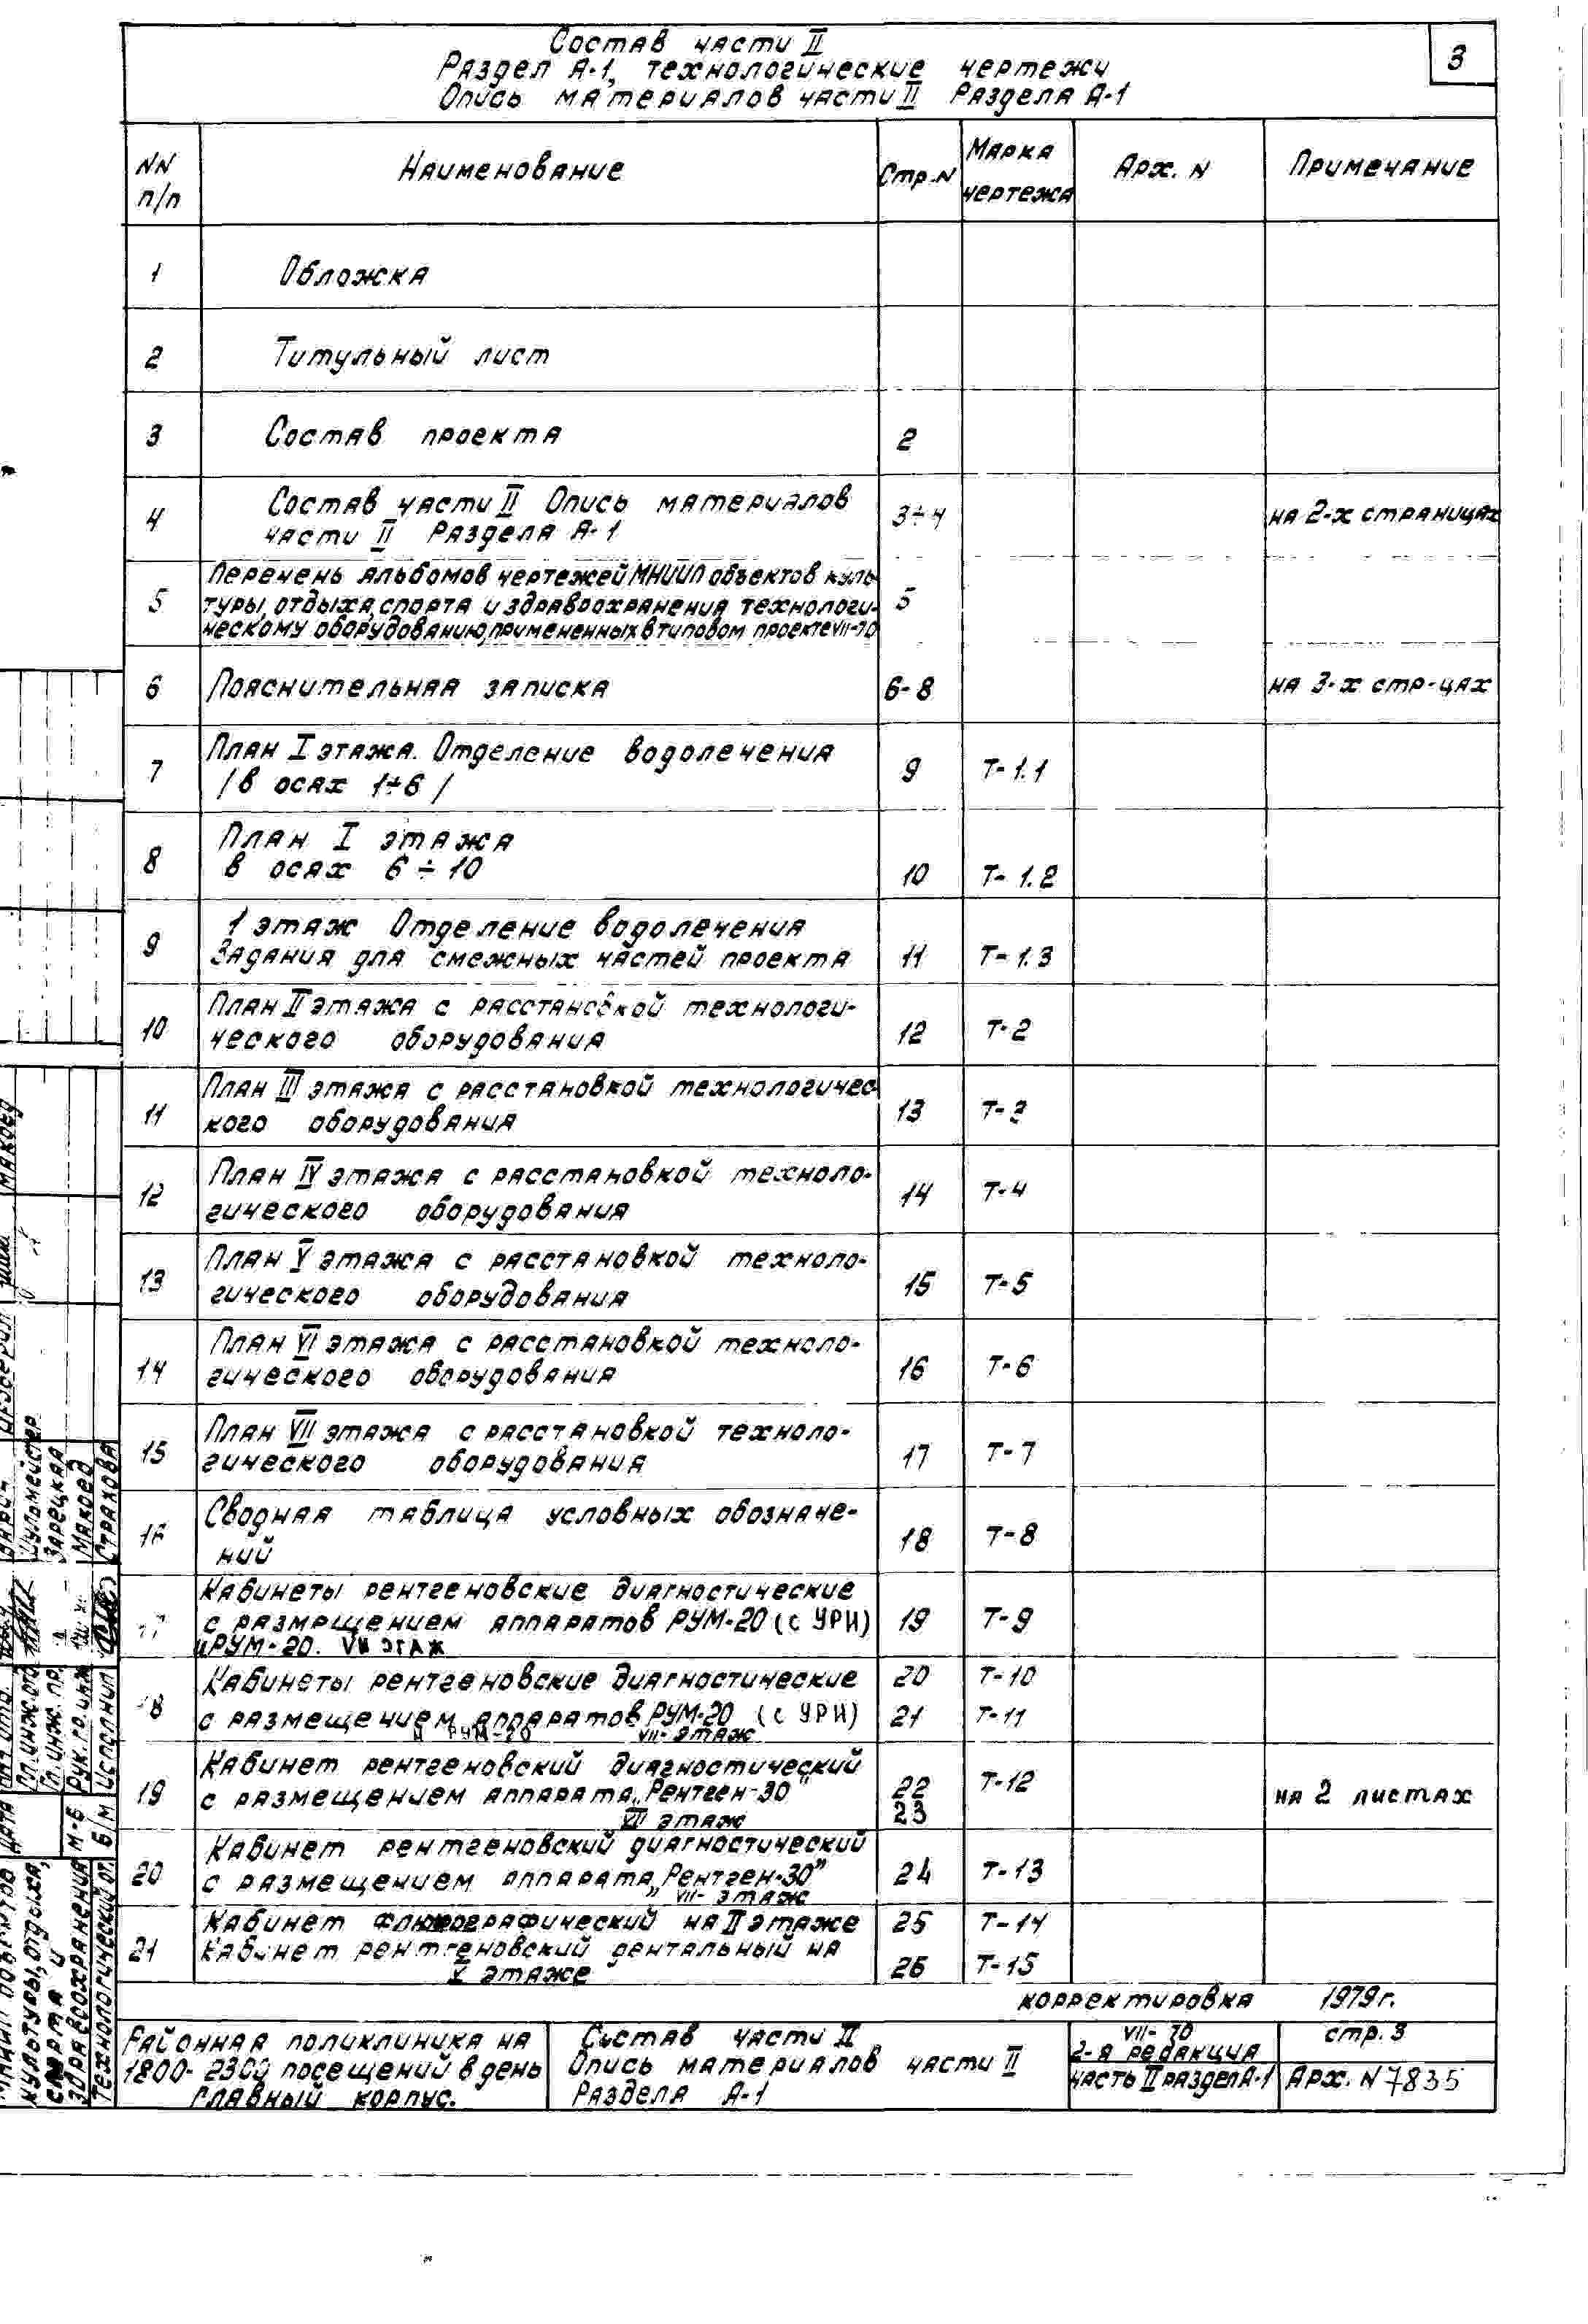 3
Состав части II
Раздел А-1, технологические чертежи
Опись материалов части II Раздела А-1
NN п/п
Наименование
Стр.N
Марка чертежа
Арх. N
Примечание
1 Обложка
2 Титульный лист
3 Состав проекта 2
4 Состав части II Опись материалов
части II Раздела А-1 3÷4 на 2-х страницах
5 Перечень альбомов чертежей МНИИП объектов куль-
туры, отдыха, спорта и здравоохранения технологи- 5
ческому оборудованию, примененных в типовом проекте VII-70
6 Пояснительная записка 6-8 на 3-х стр-цах
7 План I этажа. Отделение водолечения
/в осях 1÷6/ 9 Т-1.1
8 План I этажа
в осях 6÷10 10 Т-1.2
9 1 этаж Отделение водолечения
Задания для смежных частей проекта 11 Т-1.3
10 План II этажа с расстановкой технологи-
ческого оборудования 12 Т-2
11 План III этажа с расстановкой технологичес
кого оборудования 13 Т-3
12 План IV этажа с расстановкой техноло-
гического оборудования 14 Т-4
13 План V этажа с расстановкой техноло-
гического оборудования 15 Т-5
14 План VI этажа с расстановкой техноло-
гического оборудования 16 Т-6
15 План VII этажа с расстановкой техноло-
гического оборудования 17 Т-7
16 Сводная таблица условных обозначе-
ний 18 Т-8
Кабинеты рентгеновские диагностические
с размещением аппаратов РУМ-20 (с УРИ) 19 Т-9
и РУМ-20. VII этаж
Кабинеты рентгеновские диагностические 20 Т-10
с размещением аппаратов РУМ-20 (с УРИ) 21 Т-11
и РУМ-20 VII- этаж
19 Кабинет рентгеновский диагностический
с размещением аппарата „Рентген-30" 22 Т-12 на 2 листах
VII этаж 23
20 Кабинет рентгеновский диагностический
с размещением аппарата „Рентген-30" 24 Т-13
VII- этаж
21 Кабинет флюорографический на II этаже 25 Т-14
Кабинет рентгеновский дентальный на
V этаже 26 Т-15
корректировка 1979г.
Районная поликлиника на
1800-2300 посещений в день
главный корпус.
Состав части II
Опись материалов части II
Раздела А-1
VII-70
2-я редакция
часть II раздел А-1
стр. 3
Арх. N 7835
культуры, отдыха,
спорта и
здравоохранения
Технологический от.
М-Б
Б/М
Гл. инж. пр.
Рук. гр. инж
Исполнил
Зарецкая
Макоед
Страхова
Макоед